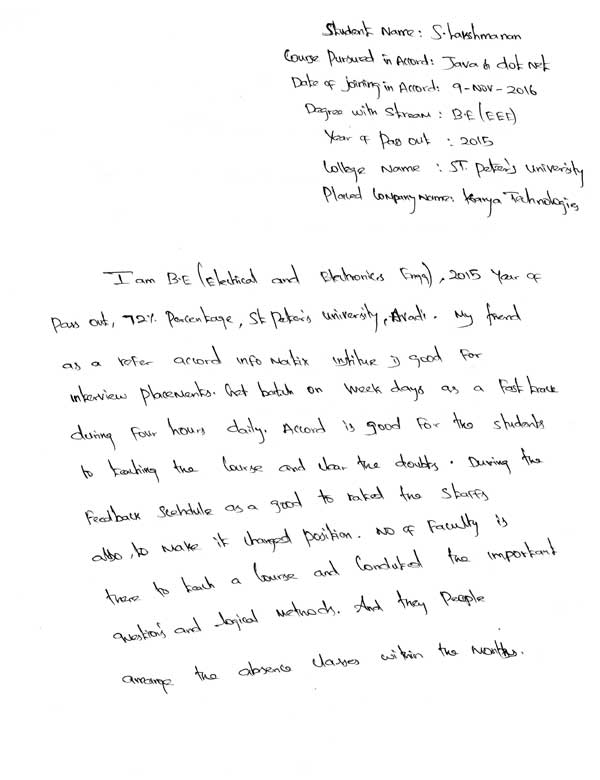 Student Name: S. Lakshmanan
Course Pursued in Accord: Java & dot net
Date of joining in Accord: 9-Nov-2016
Degree with Stream: B.E (EEE)
Year of Pass out : 2015
College Name : ST. Peter's University
Placed Company Name: Technologies
I am B.E (Electrical and Electronics Engg), 2015 Year of
Pass out, 72% Percentage, St Peter's University, Avadi. My friend
as a refer accord info Matrix institue is good for
interview placements. Get batch on week days as a fast track
during four hours daily. Accord is good for the students
to teaching the Course and clear the doubts. During the
Feedback Scehdule as a good to rated the staffs
also, to make it changed position. No of Faculty is
there to teach a Course and Conducted the important
question's and logical methods. And they People
arrange the absence classes within the Months.